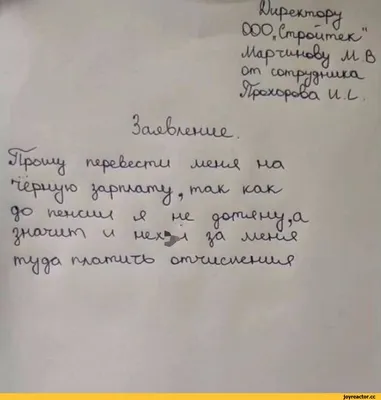 Директору
ООО „Стройтек"
Мартинову М.В
от сотрудника
Прохорова И.С.
Заявление.
Прошу перевести меня на
чёрную зарплату, так как
до пенсии я не дотяну, а
значит и нех я за меня
туда платить отчисления
joyreactor.cc